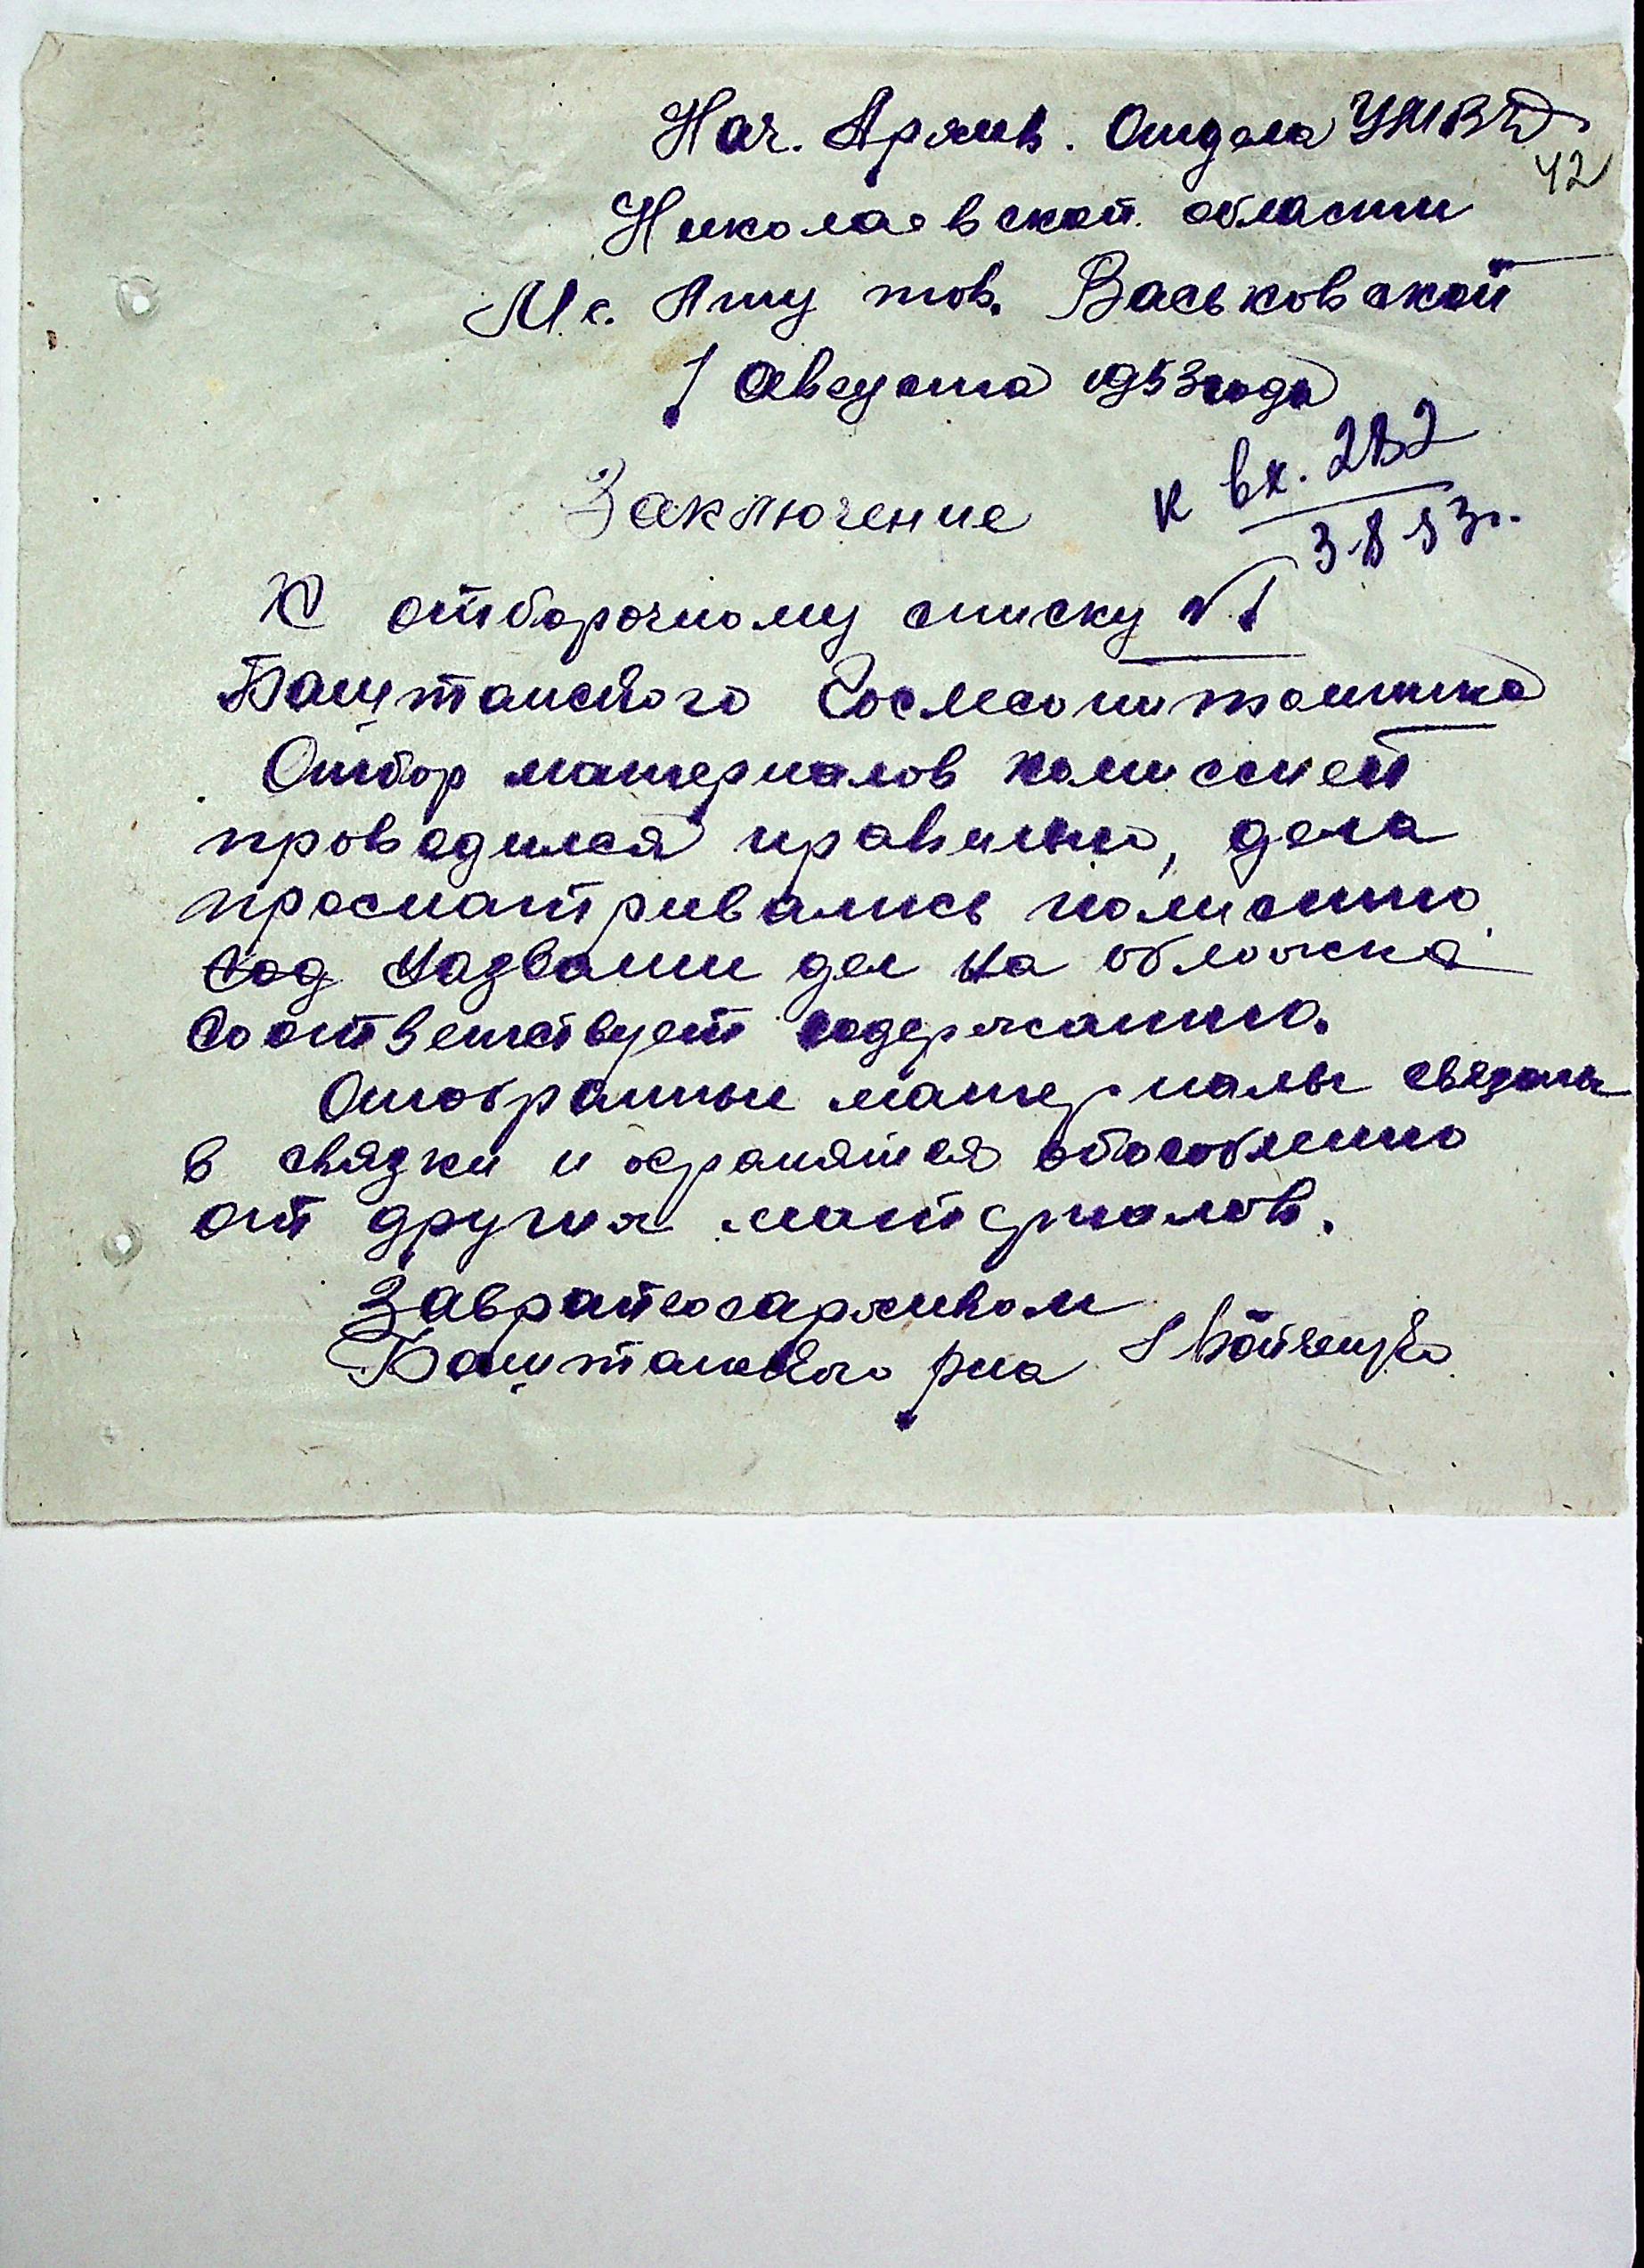 Нач. Архив. Отдела УМВД
42
Николаевской области
М.с. Л-ту тов. Васьковской
1 Августа 1953 года
Заключение
к вх. 282
3.8.53г.
К отборочному списку №1
Баштанского Госмсопитомника
Отбор материалов комиссией
проводился правильно, дела
просматривались полистно.
Сод Названии дел на обложке
Соответствует содержанию.
Отобранные материалы связаны
в связки и охраняются обособленно
от других материалов.
Заврайгосархивом
Баштанского р-на